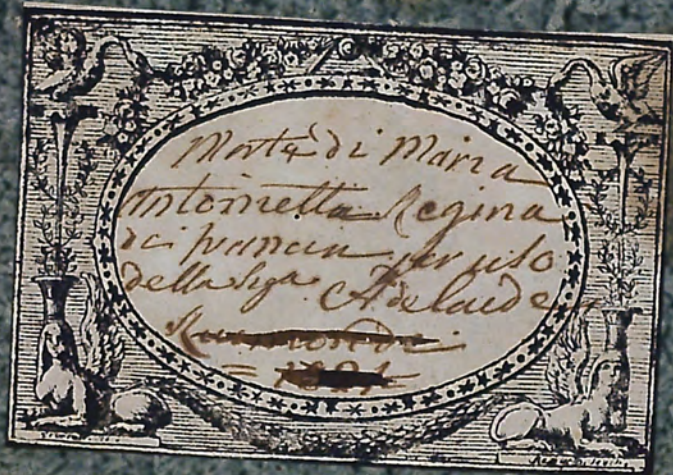 Morte di Maria
Antonietta Regina
di Francia per uso
della Sga Adelaide